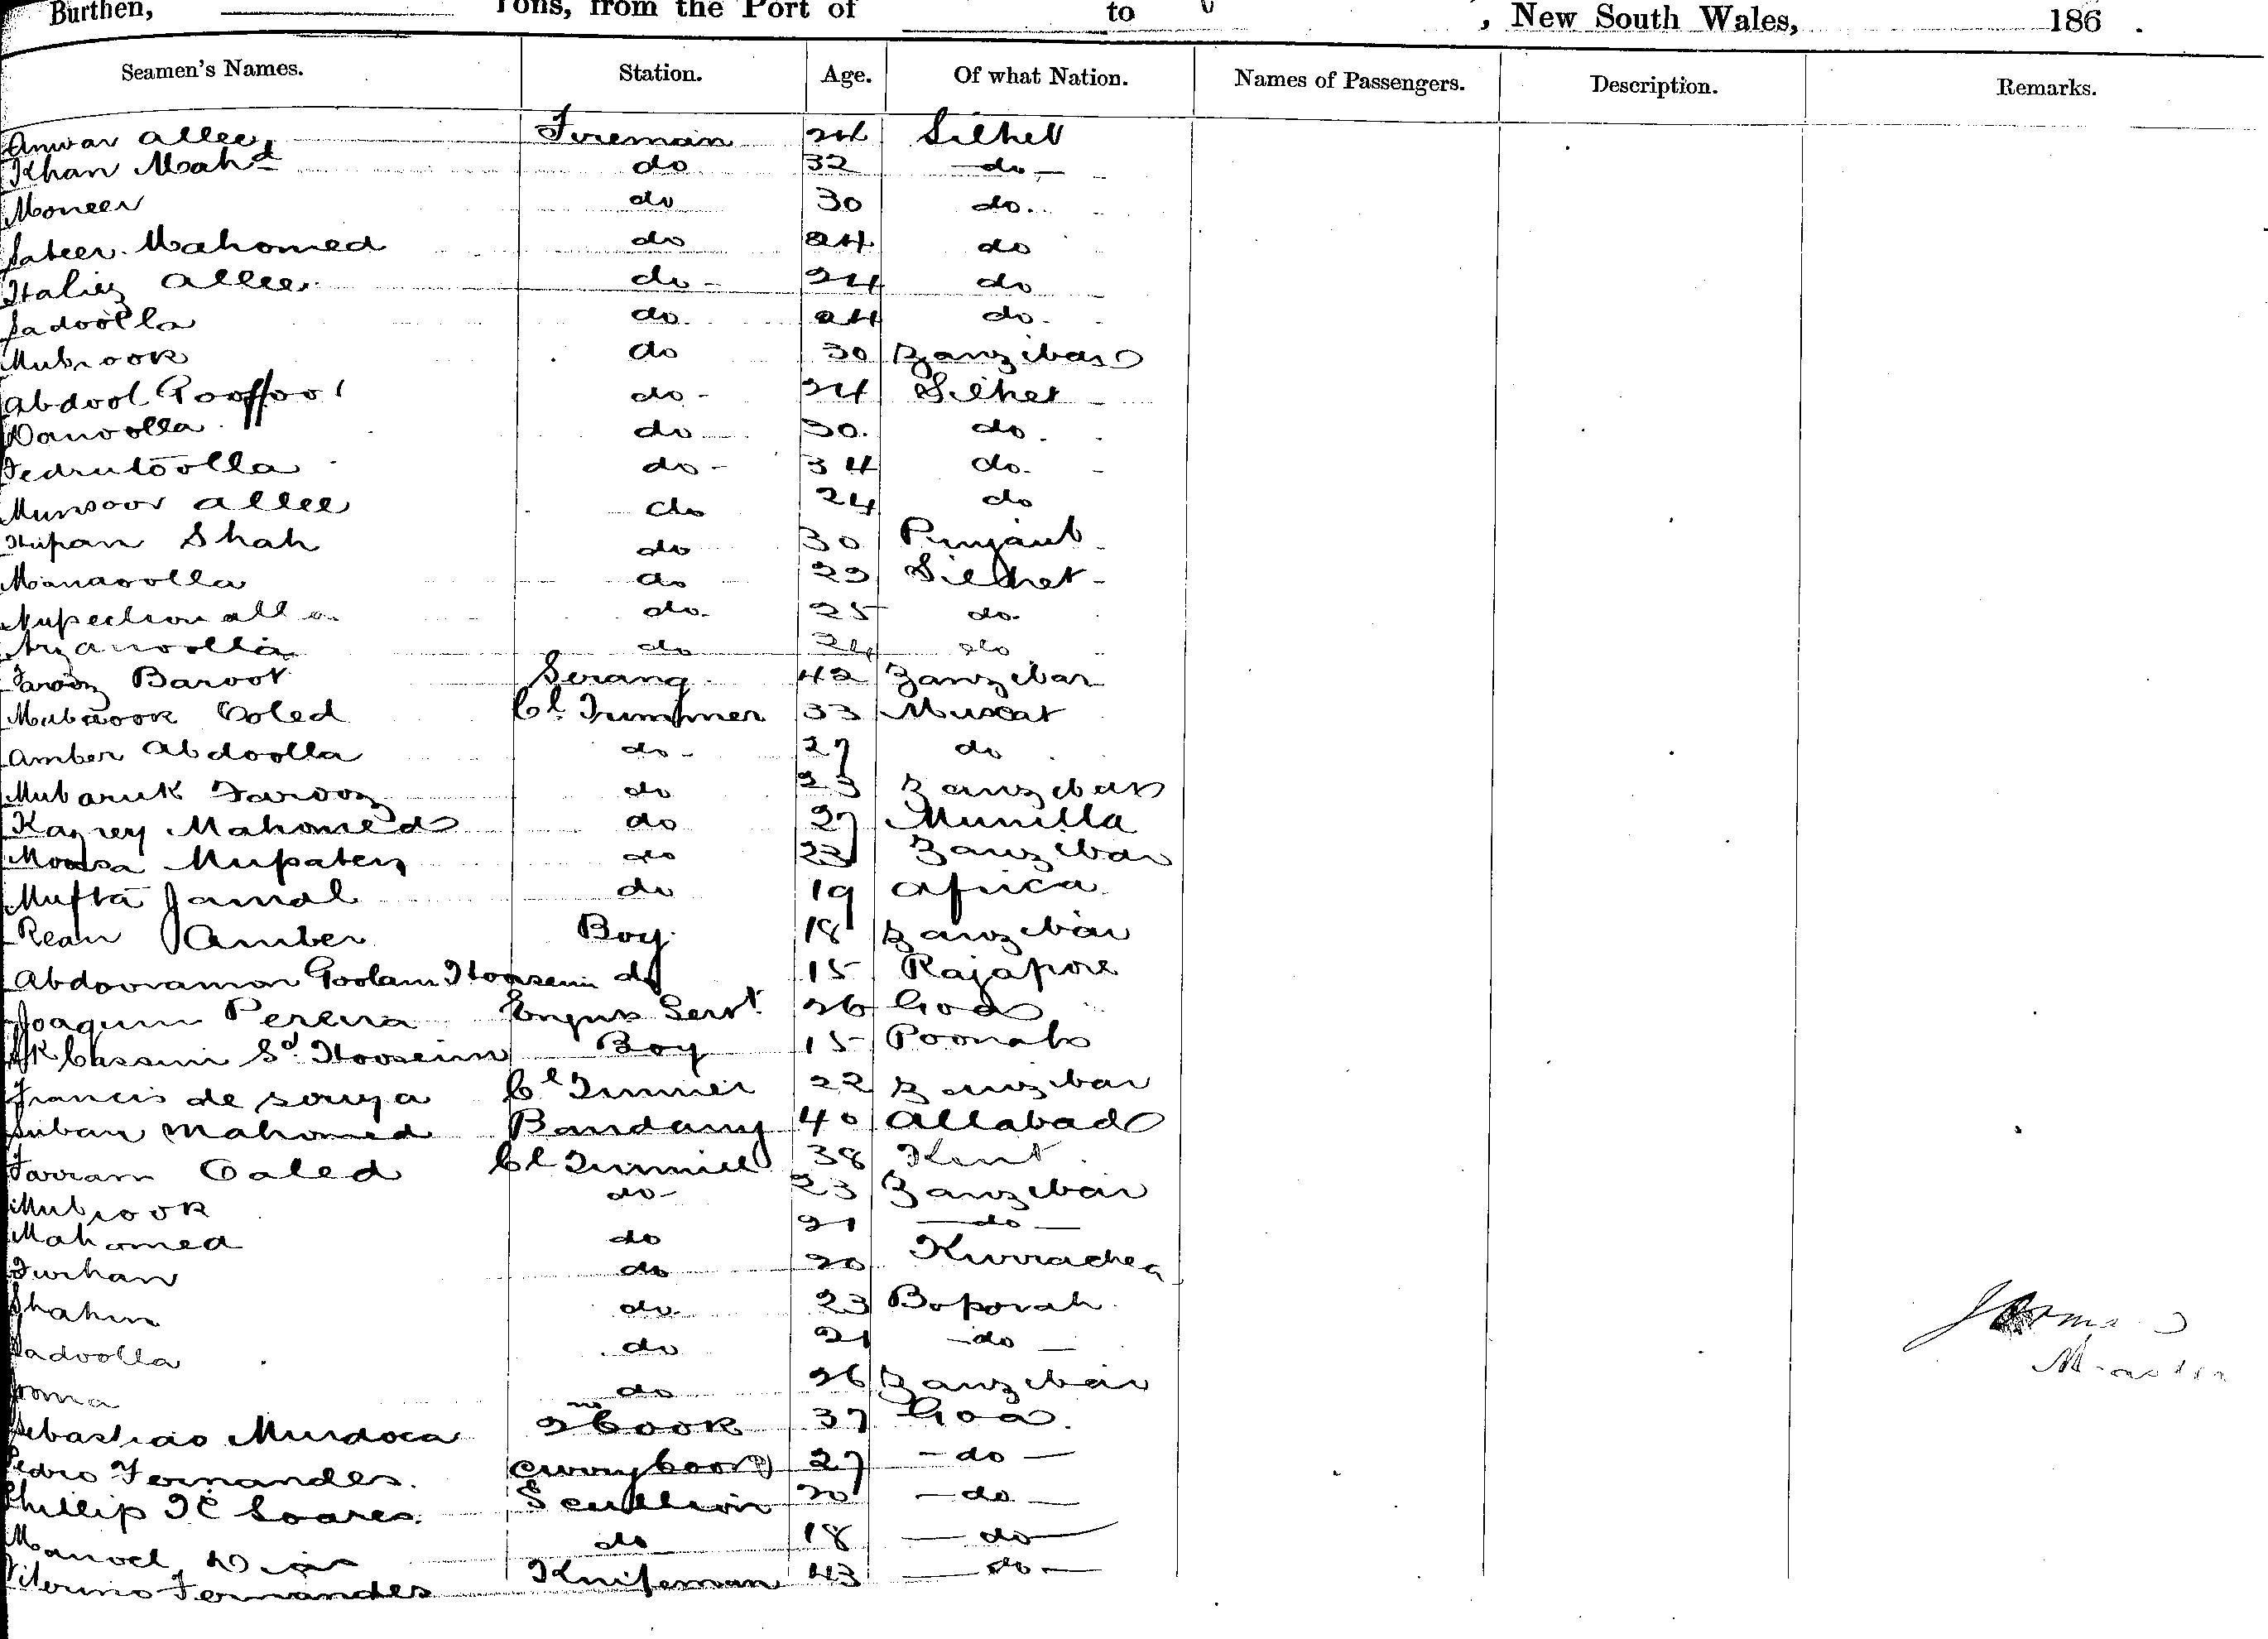 Burthen, Tons, from the Port of to , New South Wales, 186 .
Seamen's Names. Station. Age. Of what Nation. Names of Passengers. Description. Remarks.
Anwar Allee Fireman 24 Silhet
Khan Mahd do 32 do
Moneer do 30 do
Sateer Mahomed do 24 do
Allee do 24 do
Sadoolla do 24 do
Mubrook do 30 Zanzibar
Abdool Gooffoor do 24 Silhet
Danoolla do 30 do
do 34 do
Munsoor Allee do 24 do
Shah do 30 Punjaub
Manaoolla do 23 Silhet
do 25 do
do 24 do
Farooz Baroot Serang 42 Zanzibar
Mubrook Coled Cl Trimmer 33 Muscat
Amber Abdoolla do 27 do
Mubaruk Farooz do 23 Zanzibar
Mahomed do 27 Munilla
Moosa do 23 Zanzibar
Mufta Jamal do 19 Africa
Rean Amber Boy 18 Zanzibar
Abdooraman Goolam Hoosein do 15 Rajapore
Joaquim Pereira Engrs Servt 26 Goa
Sk Cassim Sd Hoosein Boy 15 Poonah
Francis de Souza Cl Trimmer 22 Zanzibar
Suban Mahomed 40 Allabad
Farram Caled Cl Trimmer 38 Kent
Mubrook do 23 Zanzibar
Mahomed do 21 do
Furhan do 20 Kurrachea
Shahin do 23 Boporah
Sadoolla do 21 do
Joma do 26 Zanzibar
Sebastiao Murdoca 2nd Cook 37 Goa
Pedro Fernandes Currycook 27 do
Phillip Soares Scullion 20 do
Manoel Dias do 18 do
Viterino Fernandes Knifeman 43 do
Master